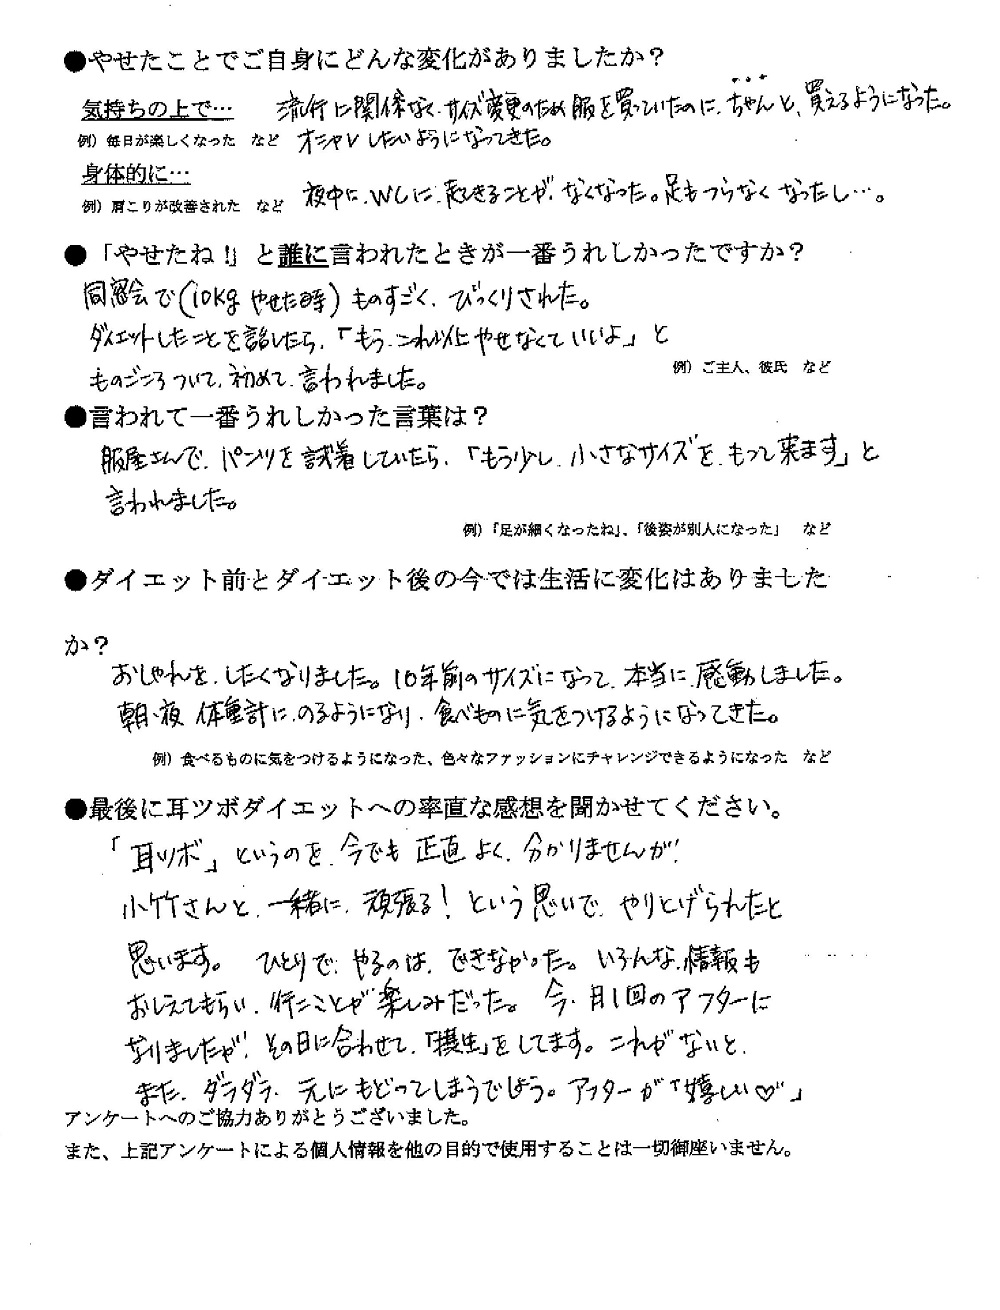 ●やせたことでご自身にどんな変化がありましたか？
気持ちの上で… 流行に関係なく、サイズ変更のため服を買っていたのに、ちゃんと、買えるようになった。
例）毎日が楽しくなった　など オシャレしたいようになってきた。
身体的に…
例）肩こりが改善された　など 夜中に、WCに、起きることが、なくなった。足もつらなくなったし…。
●「やせたね！」と誰に言われたときが一番うれしかったですか？
同窓会で（10kgやせた時）ものすごく、びっくりされた。
ダイエットしたことを話したら、「もう、これ以上やせなくていいよ」と
例）ご主人、彼氏　など
ものごころついて、初めて、言われました。
●言われて一番うれしかった言葉は？
服屋さんで、パンツを試着していたら、「もう少し、小さなサイズを、もって来ます」と
言われました。
例）「足が細くなったね」、「後姿が別人になった」　など
●ダイエット前とダイエット後の今では生活に変化はありました
か？
おしゃれを、したくなりました。10年前のサイズになって、本当に、感動しました。
朝・夜　体重計に、のるようになり、食べものに気をつけるようになってきた。
例）食べるものに気をつけるようになった、色々なファッションにチャレンジできるようになった　など
●最後に耳ツボダイエットへの率直な感想を聞かせてください。
「耳ツボ」というのを、今でも正直よく、分かりませんが、
小竹さんと、一緒に、頑張る！という思いで、やりとげられたと
思います。　ひとりで、やるのは、できなかった。いろんな、情報も
おしえてもらい、行くことが楽しみだった。　今、月1回のアフターに
なりましたが、その日に合わせて、「摂生」をしてます。これがないと、
また、ダラダラ、元にもどってしまうでしょう。アフターが「嬉しい♡」
アンケートへのご協力ありがとうございました。
また、上記アンケートによる個人情報を他の目的で使用することは一切御座いません。